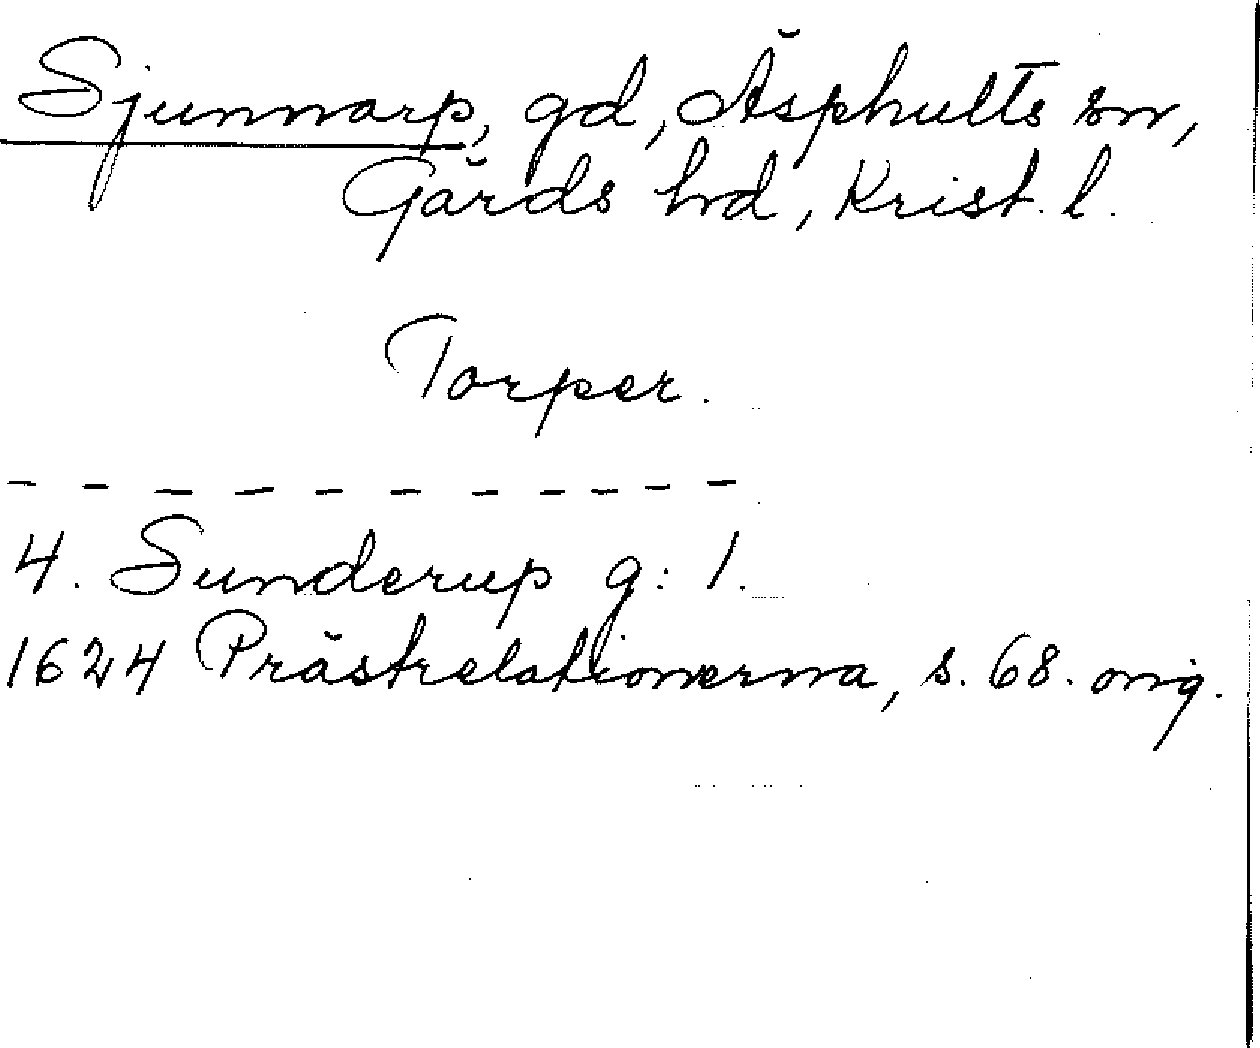 Sjunnarp, gd, Äsphults sn,
Gärds hrd, Krist. l.
Torper.
4. Sunderup g: 1.
1624 Prästrelationerna, s. 68. orig.